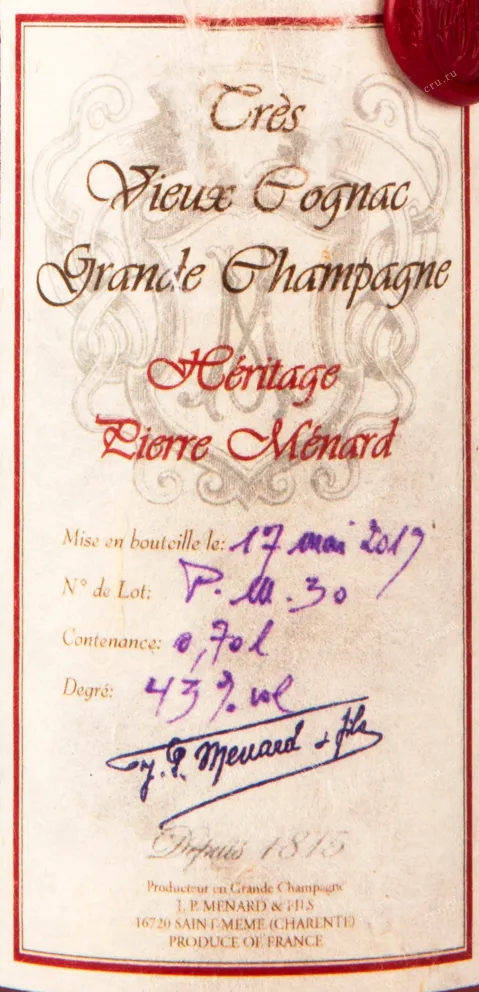 cru.ru
Très
Vieux Cognac
Grande Champagne
Héritage
Pierre Ménard
Mise en bouteille le: 17 mai 2019
N° de Lot: P.M.30
Contenance: 0,70 l
Degré: 43 % vol
J.P. Menard & fils
Depuis 1815
Producteur en Grande Champagne
J. P. MENARD & FILS
16720 SAINT-MEME (CHARENTE)
PRODUCE OF FRANCE